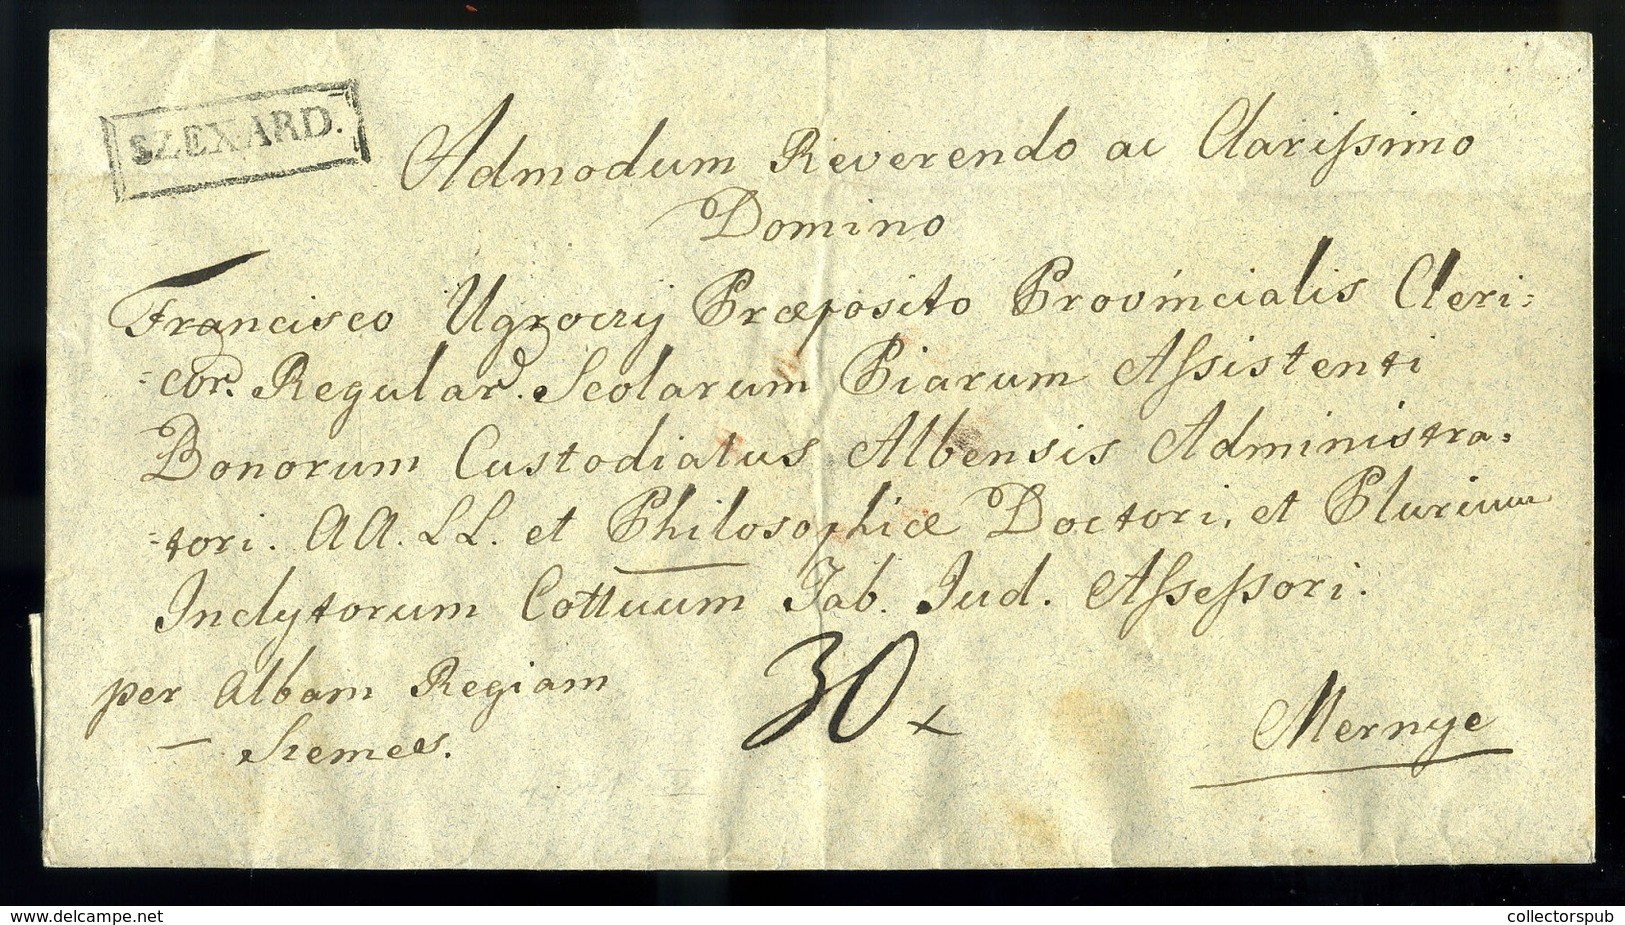 SZEXARD.
Admodum Reverendo ac Clarissimo
Domino
Francisco Ugroczy Præposito Provincialis Cleri:
=cor. Regular. Scolarum Piarum Assistenti
Bonorum Custodiatus Albensis Administra=
=tori. AA. LL. et Philosophiæ Doctori, et Plurium
Inclytorum Cottuum Tab. Jud. Assessori.
per Albam Regiam
— Szemes.
30 x
Mernye
www.delcampe.net
collectorspub